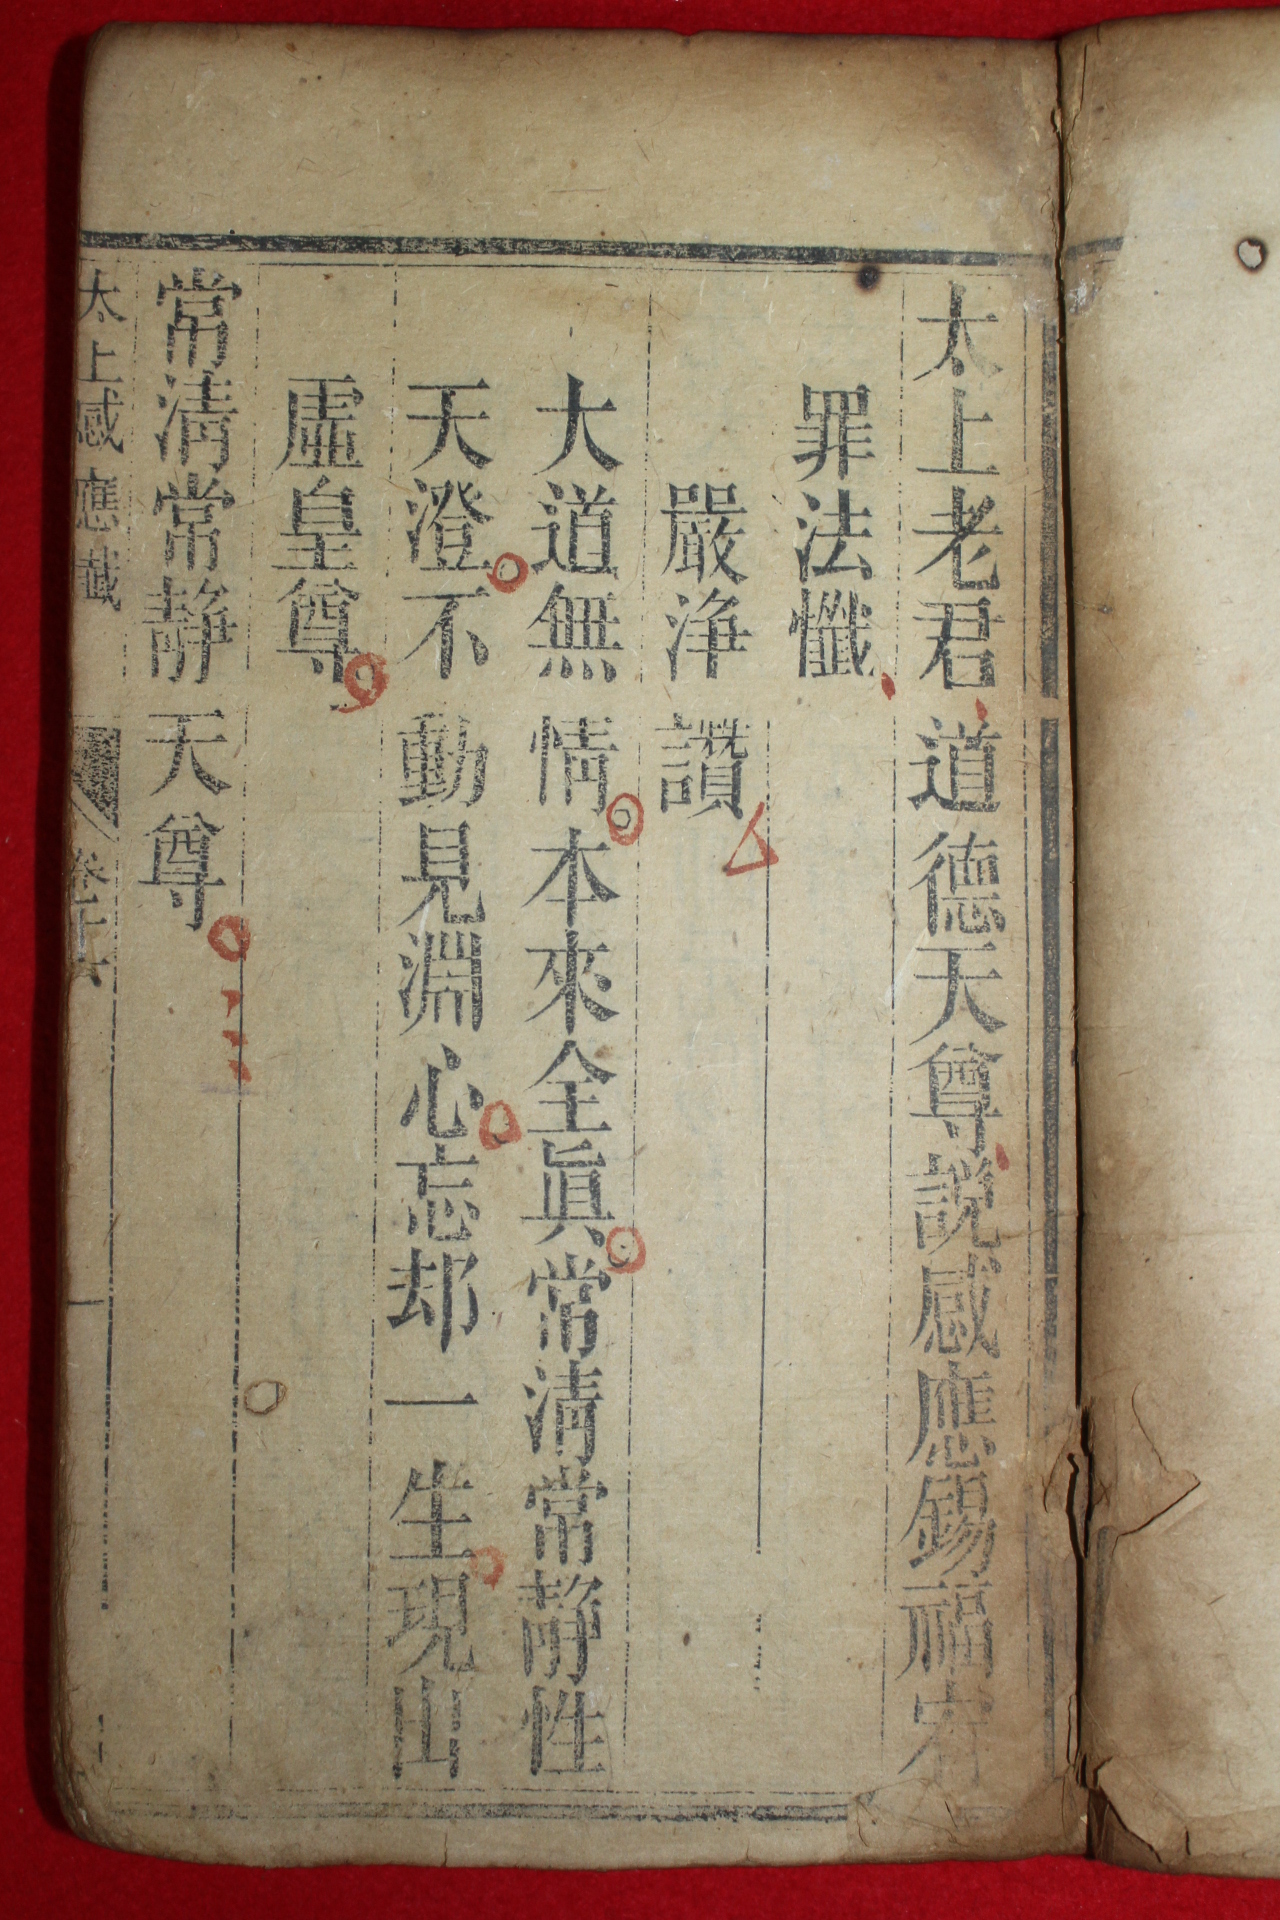 太上老君道德天尊說感應錫福宥
罪法懺
嚴淨讚
大道無情本來全眞常清常静性
天澄不動見淵心忘却一生現出
虛皇尊
常清常静天尊
太上感應懺
卷十六
一